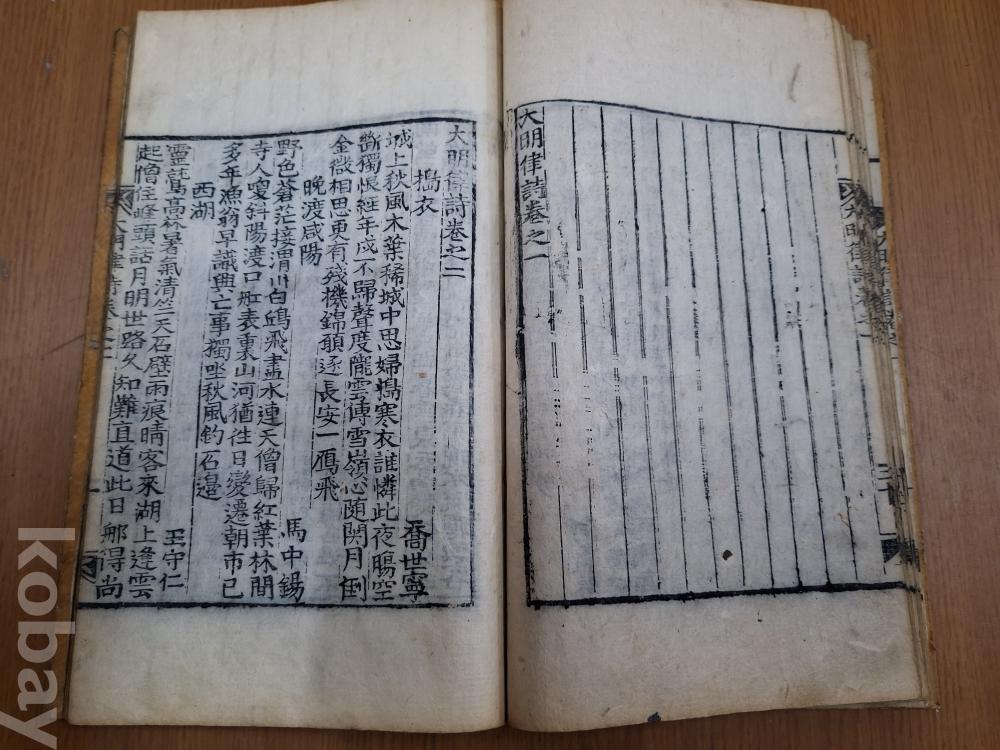 大明律詩卷之一
大明律詩卷之二
搗衣
喬世寧
城上秋風木葉稀城中思婦搗寒衣誰憐此夜腸空
斷獨悵經年戍不歸聲度隴雲傳雪嶺心隨関月倒
金微相思更有殘機錦願逐長安一鴈飛
晚渡咸陽
馬中錫
野色蒼茫接渭川白鷗飛盡水連天僧歸紅葉林間
寺人喚斜陽渡口舡表裏山河猶往日變遷朝市已
多年漁翁早識興亡事獨坐秋風釣石邊
西湖
王守仁
靈鷲高林暑氣清竺天石壁雨痕晴客來湖上逢雲
起僧住峰頭話月明世路久知難直道此日那得尚
大明律詩卷之二
kobay